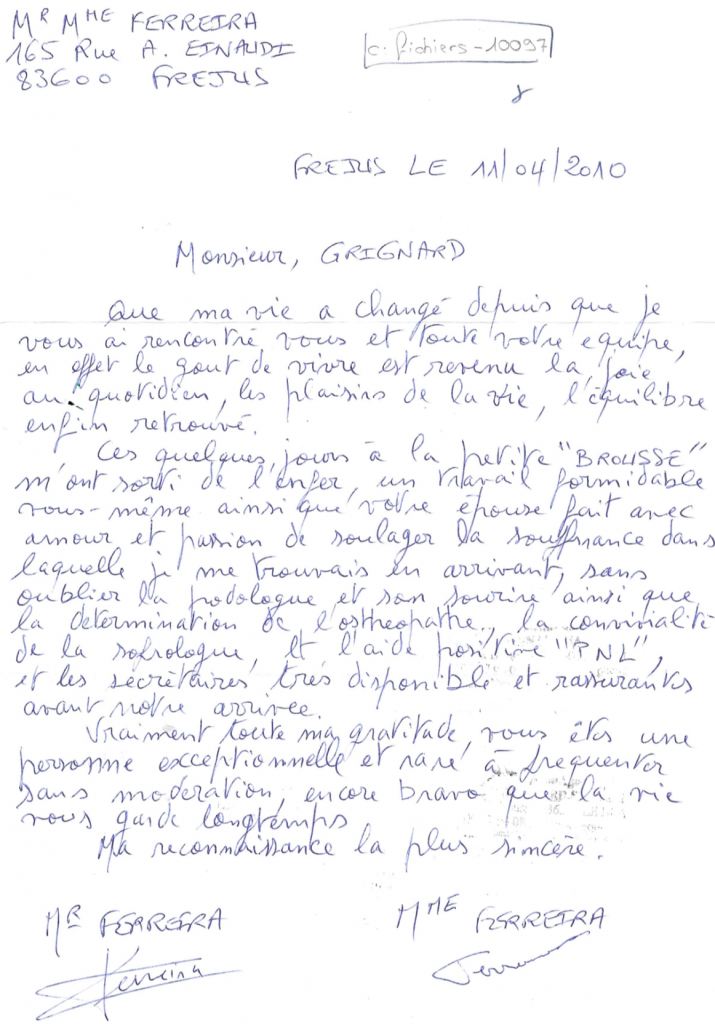 Mr Mme FERREIRA
165 Rue A. EINAUDI
83600 FREJUS
c. fichiers - 10097
FREJUS LE 11/04/2010
Monsieur, GRIGNARD
Que ma vie a changé depuis que je
vous ai rencontré vous et toute votre equipe,
en effet le gout de vivre est revenu la joie
au quotidien, les plaisirs de la vie, l'équilibre
enfin retrouvé.
Ces quelques jours à la petite "BROUSSE"
m'ont sorti de l'enfer, un travail formidable
vous-même ainsi que votre épouse fait avec
amour et passion de soulager la souffrance dans
laquelle je me trouvais en arrivant, sans
oublier la podologue et son sourire ainsi que
la determination de l'ostheopathe, la convivialité
de la sofrologue, et l'aide positive "PNL",
et les sécrétaires très disponible et rassurantes
avant notre arrivée.
Vraiment toute ma gratitude, vous êtes une
personne exceptionnelle et rare à frequenter
sans moderation, encore bravo que la vie
vous garde longtemps
Ma reconnaissance la plus sincère.
Mr FERREIRA
Mme FERREIRA
Ferreira